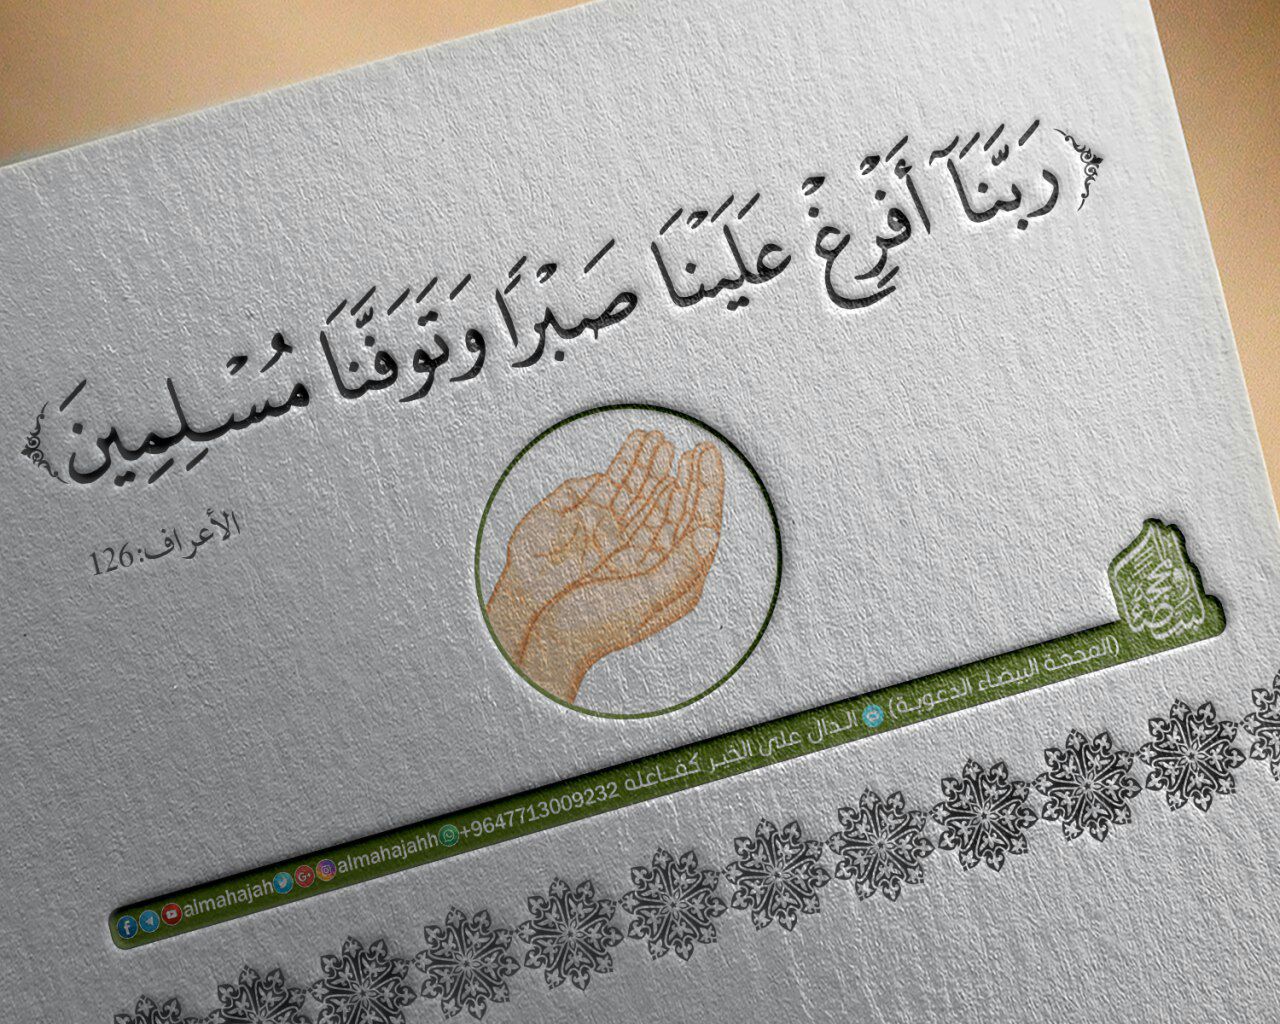 ﴿رَبَّنَآ أَفْرِغْ عَلَيْنَا صَبْرًا وَتَوَفَّنَا مُسْلِمِينَ﴾
الأعراف: 126
المحجة البيضاء
(المحجة البيضاء الدعوية) الدال على الخير كفاعله +9647713009232 almahajahh almahajah